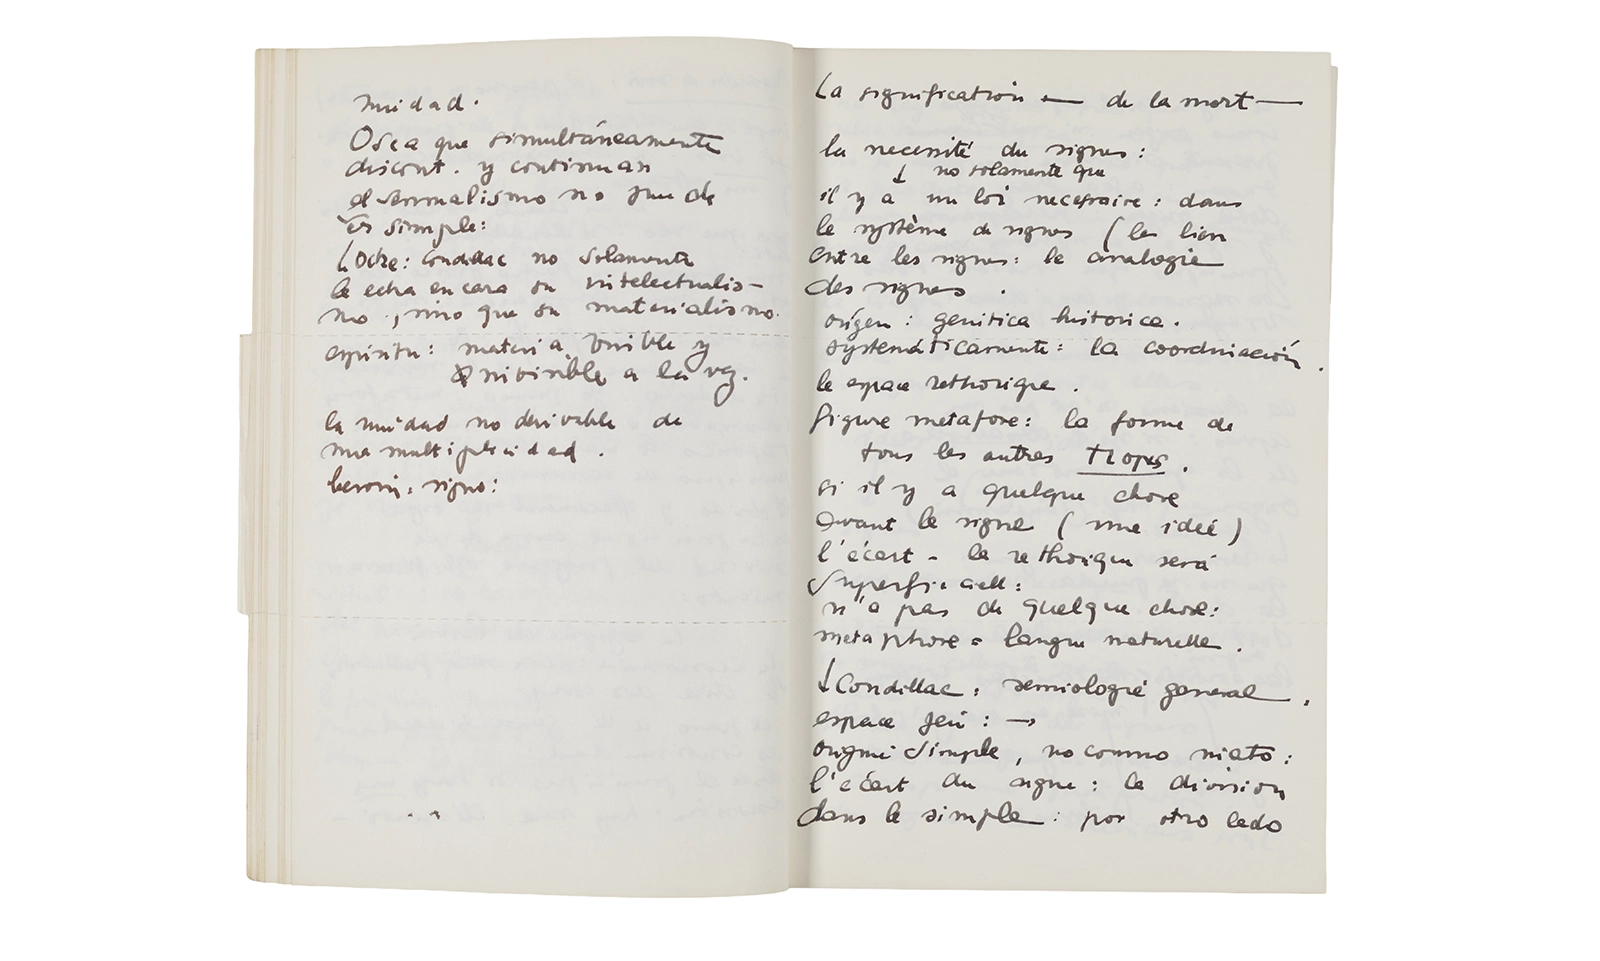 unidad.
O sea que simultáneamente
discont. y continuan
el sensualismo no puede
es simple:
Locke: Condillac no solamente
le echa en cara su intelectualis-
mo, sino que su materialismo.
espiritu: materia, visible y
invisible a la vez.
la unidad no derivable de
una multiplicidad.
signo:
La signification — de la mort —
la necessité du signes:
↓ no solamente que
il y a un loi necessaire: dans
le système de signes (le lien
entre les signes: le analogie
des signes.
origen: genetica historica.
systemáticamente: la coordinación.
le espace rethorique.
figure metafore: la forme de
tous les autres tropes.
si il y a quelque chose
avant le signe (une ideé)
l'écart - le rethorique será
superficiell:
n'a pas de quelque chose:
metaphore = langue naturelle.
↓ Condillac: semiologié general.
espace jeu: →
origine simple, no como nieto:
l'écart du signe: le division
dans le simple: por otro lado